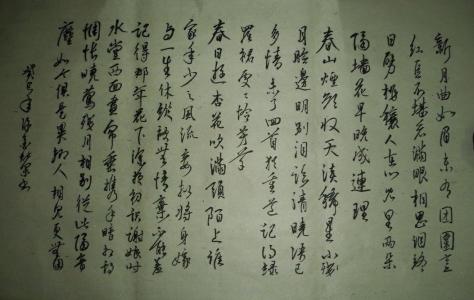 新月曲如眉未有团圞意
红豆不堪看满眼相思泪终
日劈桃穰人在心儿里两朵
隔墙花早晚成连理
春山烟欲收天淡稀星小残
月脸边明别泪临清晓语已
多情未了回首犹重道记得绿
罗裙处处怜芳草
春日游杏花吹满头陌上谁
家年少足风流妾拟将身嫁
与一生休纵被无情弃不能羞
记得那年花下深夜初识谢娘时
水堂西面画帘垂携手暗相期
惆怅晓莺残月相别从此隔音
尘如今俱是异乡人相见更无因